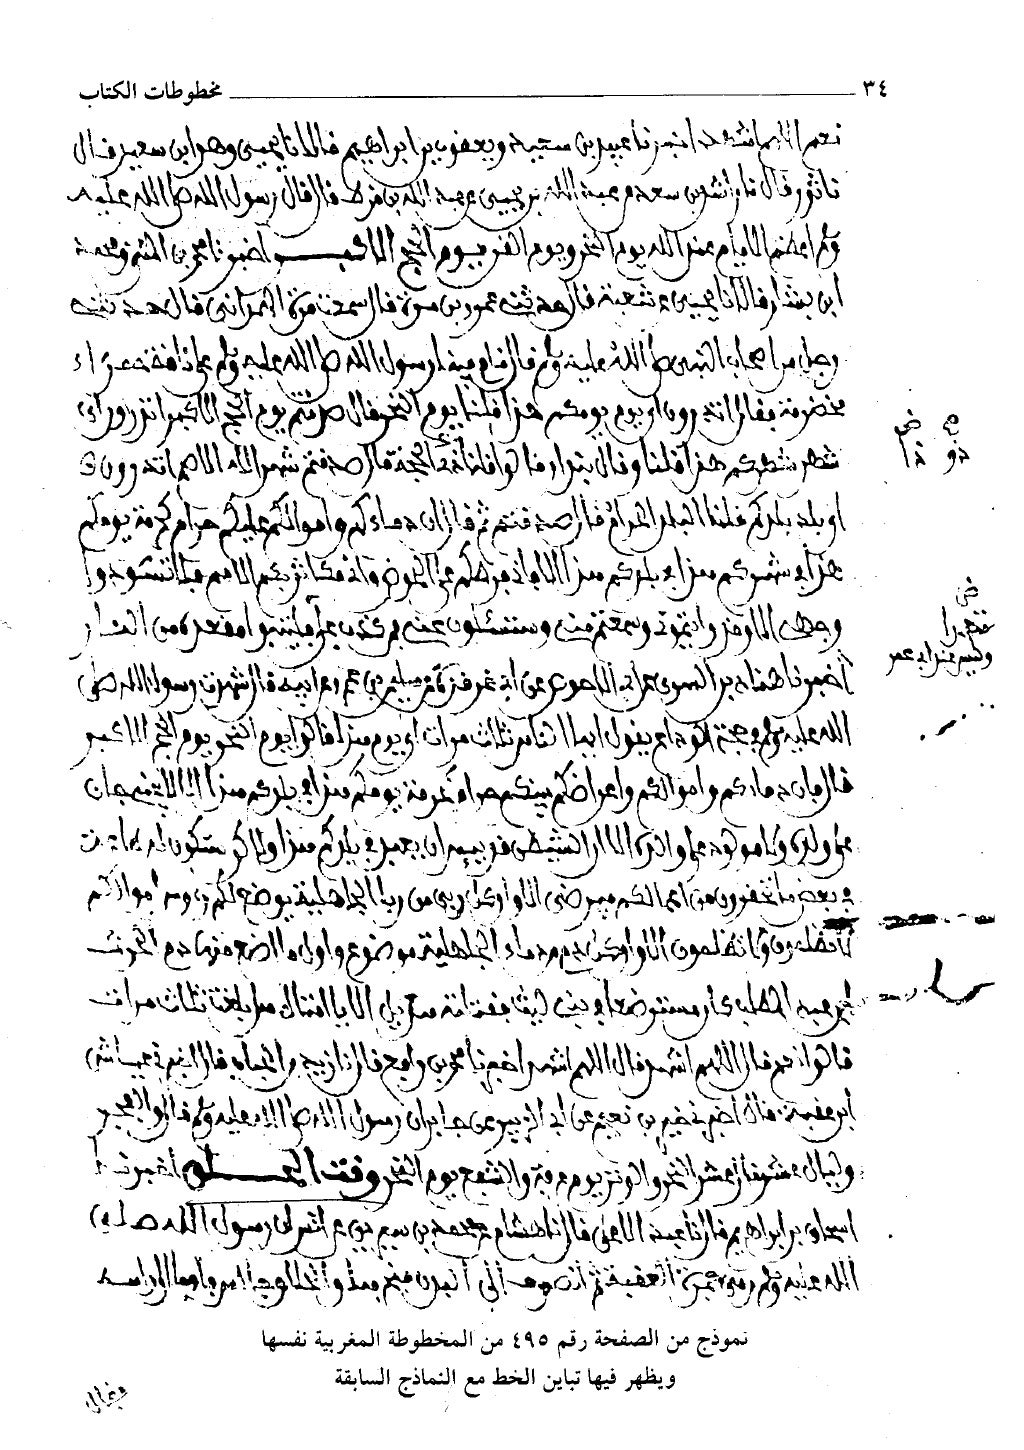 ٣٤ مخطوطات الكتاب
نعم اللهم اشهد اخبرنا عبيد بن سعيد ويعقوب بن ابراهيم قالا نا يحيى وهو ابن سعيد قال
نا ثور قال نا راشد بن سعد عن عبد الله بن يحيى عن عبد الله بن قرط قال قال رسول الله صلى الله عليه
وسلم اعظم الايام عند الله يوم النحر ويوم القر يوم الحج الاكبر اخبرنا عمرو بن المثنى ومحمد
ابن بشار قالا نا يحيى عن شعبة قال حدثني عمرو بن مرة قال سمعت مرة الهمداني قال حدثني
رجل من اصحاب النبي صلى الله عليه وسلم قال قام فينا رسول الله صلى الله عليه وسلم على ناقة حمراء
مخضرمة فقال اتدرون اي يوم يومكم هذا قلنا يوم النحر قال صدقتم يوم الحج الاكبر اتدرون اي
شهر شهركم هذا قلنا وقال بندار قالوا قلنا ذو الحجة قال صدقتم شهر الله الاصم اتدرون
اي بلد بلدكم قلنا البلد الحرام قال صدقتم ثم قال ان دماءكم واموالكم عليكم حرام كحرمة يومكم
هذا في شهركم هذا في بلدكم هذا الا واني فرطكم على الحوض واني مكاثر بكم الامم فلا تسودوا
وجهي الا وقد رايتموني وسمعتم مني وستسئلون عني فمن كذب علي فليتبوا مقعده من النار
اخبرنا هناد بن السري عن ابي الاحوص عن ابن غرقدة عن سليمان بن عمرو عن ابيه قال شهدت رسول الله صلى
الله عليه وسلم في حجة الوداع يقول ايها الناس ثلاث مرات اي يوم هذا قالوا يوم النحر يوم الحج الاكبر
قال فان دماءكم واموالكم واعراضكم بينكم حرام كحرمة يومكم هذا في بلدكم هذا الا لا يجني جان
على ولده ولا مولود على والده الا ان الشيطن قد يئس ان يعبد في بلدكم هذا ولكن ستكون له طاعة
في بعض ما تحقرون من اعمالكم فيرضى الا وان كل ربى من ربا الجاهلية يوضع لكم رءوس اموالكم
لا تظلمون ولا تظلمون الا وان كل دم من دماء الجاهلية موضوع واول ما اضع منها دم الحرث
ابن عبد المطلب كان مسترضعا في بني ليث فقتلته هذيل الا يا امتاه هل بلغت ثلاث مرات
قالوا نعم قال اللهم اشهد قال اللهم اشهد اخبرنا محمد بن رافع قال نا زيد وهو ابن الحباب قال اخبرني عياش
ابن عقبة قال اخبرني خير بن نعيم عن ابي الزبير عن جابر ان رسول الله صلى الله عليه وسلم قال والفجر
وليال عشر قال عشر النحر والوتر يوم عرفة والشفع يوم النحر وقت الحلق اخبرنا
اسحاق بن ابراهيم قال نا عبد الاعلى قال نا هشام عن محمد بن سيرين عن انس ان رسول الله صلى
الله عليه وسلم رمى جمرة العقبة ثم
نموذج من الصفحة رقم ٤٩٥ من المخطوطة المغربية نفسها
ويظهر فيها تباين الخط مع النماذج السابقة